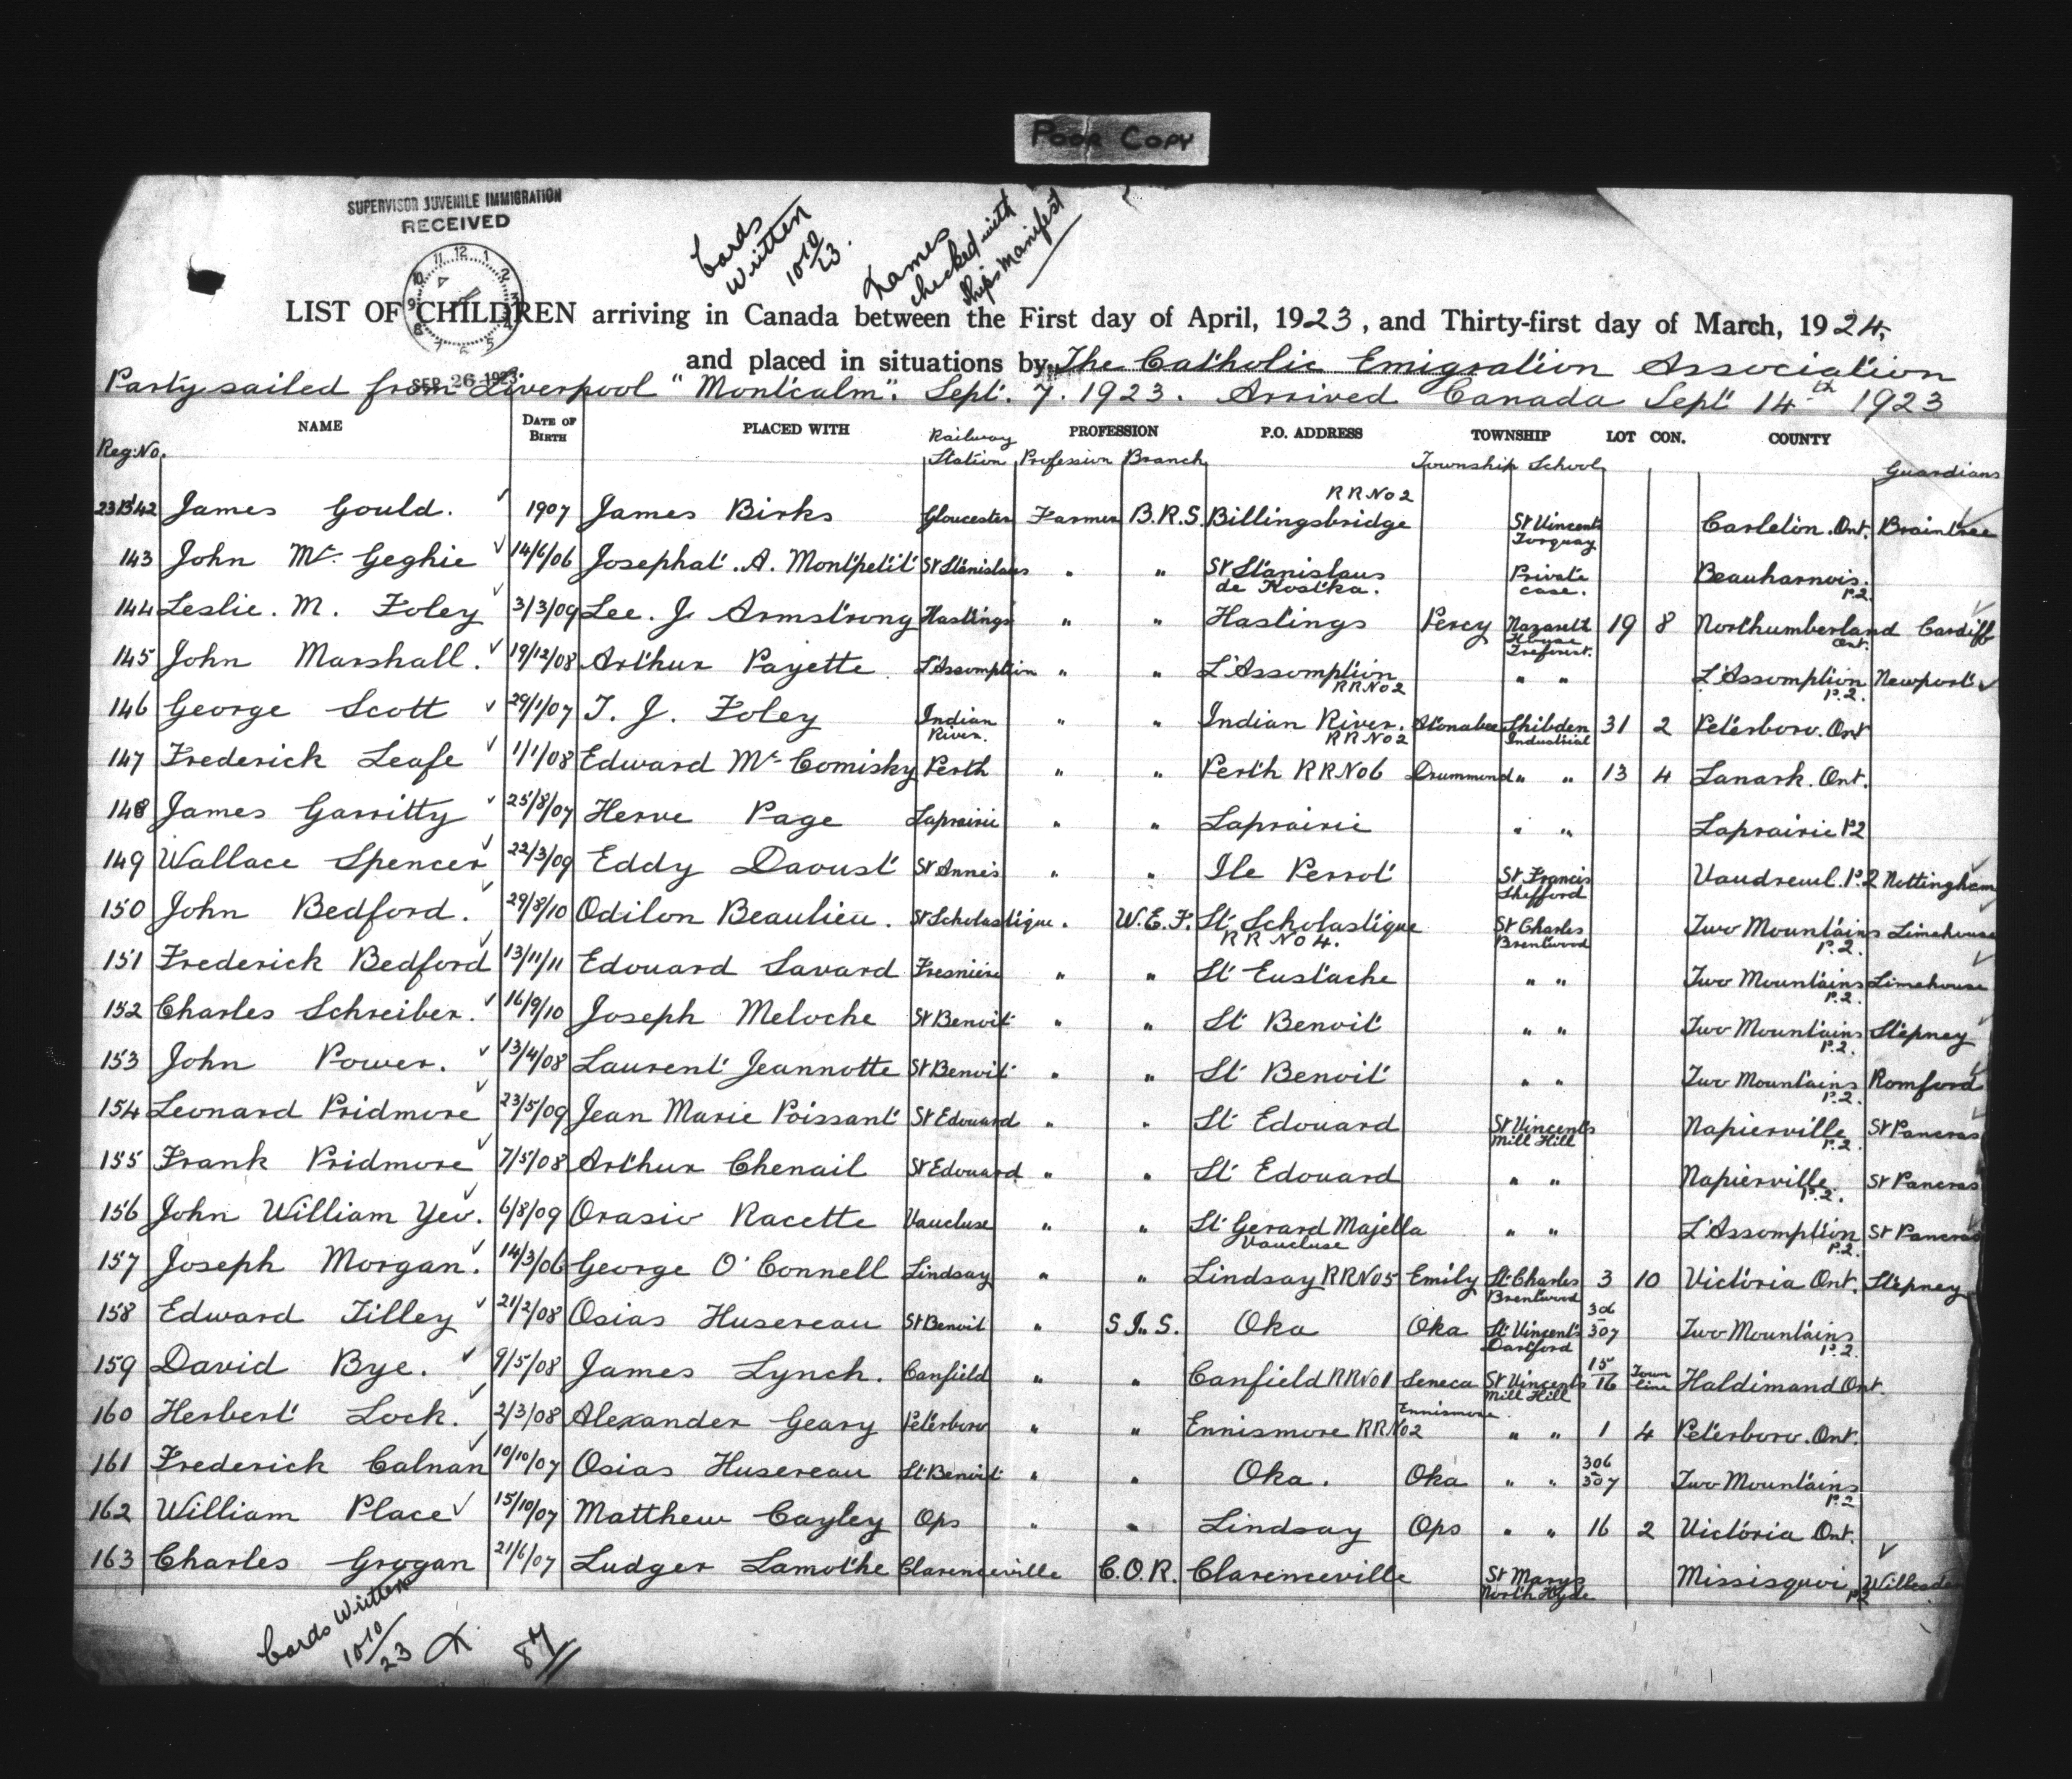 Poor Copy
SUPERVISOR JUVENILE IMMIGRATION
RECEIVED
SEP 26 1923
Cards
Written
10/10/23.
Names
checked with
ships manifest
LIST OF CHILDREN arriving in Canada between the First day of April, 1923, and Thirty-first day of March, 1924,
and placed in situations by The Catholic Emigration Association
Party sailed from Liverpool "Montcalm". Sept. 7. 1923. Arrived Canada Sept 14th 1923
Reg: No. NAME DATE OF BIRTH PLACED WITH Railway Station PROFESSION Profession Branch P.O. ADDRESS TOWNSHIP Township School LOT CON. COUNTY Guardians
142 James Gould. 1907 James Birks Gloucester Farmer B.R.S. Billingsbridge RR No 2 St Vincents Torquay Carleton. Ont. Braintree
143 John Mc Geghie 14/6/06 Josephat. A. Montpetit St Stanislaus " " St Stanislaus de Kostka. Private case. Beauharnois. P.2.
144 Leslie. M. Foley 3/3/09 Lee. J Armstrong Hastings " " Hastings Percy Nazareth House Treforest. 19 8 Northumberland Ont. Cardiff
145 John Marshall. 19/12/08 Arthur Payette L'Assomption " " L'Assomption RR No 2 " " L'Assomption P.2. Newport
146 George Scott 29/1/07 T. J. Foley Indian River. " " Indian River. RR No 2 Otonabee Shibden Industrial 31 2 Peterboro. Ont
147 Frederick Leafe 1/1/08 Edward Mc Comisky Perth " " Perth RR No 6 Drummond " " 13 4 Lanark. Ont.
148 James Garritty 25/8/07 Herve Page Laprairie " " Laprairie " " Laprairie P2
149 Wallace Spencer 22/3/09 Eddy Daoust St Annes " " Ile Perrot St Francis Shefford Vaudreuil. P.2 Nottingham
150 John Bedford. 29/8/10 Odilon Beaulieu. St Scholastique. W.E.F. St Scholastique RR No 4. St Charles Brentwood Two Mountains P.2. Limehouse
151 Frederick Bedford 13/11/11 Edouard Savard Fresniere " " St Eustache " " Two Mountains P.2. Limehouse
152 Charles Schreiber. 16/9/10 Joseph Meloche St Benoit " " St Benoit " " Two Mountains P.2. Stepney
153 John Power. 13/4/08 Laurent Jeannotte St Benoit " " St Benoit " " Two Mountains P.2. Romford
154 Leonard Pridmore 23/5/09 Jean Marie Poissant St Edouard " " St Edouard St Vincents Mill Hill Napierville P.2. St Pancras
155 Frank Pridmore 7/5/08 Arthur Chenail St Edouard " " St Edouard " " Napierville. P.2. St Pancras
156 John William Yeo. 6/8/09 Orasio Racette Vaucluse " " St Gerard Majella Vaucluse " " L'Assomption P.2. St Pancras
157 Joseph Morgan. 14/3/06 George O'Connell Lindsay " " Lindsay RR No 5 Emily St Charles Brentwood 3 10 Victoria Ont. Stepney
158 Edward Tilley 21/2/08 Osias Husereau St Benoit " S.I.S. Oka Oka St Vincents Dartford 306 307 Two Mountains P.2.
159 David Bye. 9/5/08 James Lynch. Canfield " " Canfield RR No 1 Seneca St Vincents Mill Hill 15 16 Town line Haldimand Ont.
160 Herbert Lock. 2/3/08 Alexander Geary Peterboro " " Ennismore RR No 2 Ennismore. " " 1 4 Peterboro. Ont.
161 Frederick Calnan 10/10/07 Osias Husereau St Benoit " " Oka. Oka " " 306 307 Two Mountains P.2
162 William Place 15/10/07 Matthew Cayley Ops " " Lindsay Ops " " 16 2 Victoria Ont.
163 Charles Grogan 21/6/07 Ludger Lamothe Clarenceville C.O.R. Clarenceville St Marys North Hyde Missisquoi P2
Cards Written
10/10/23